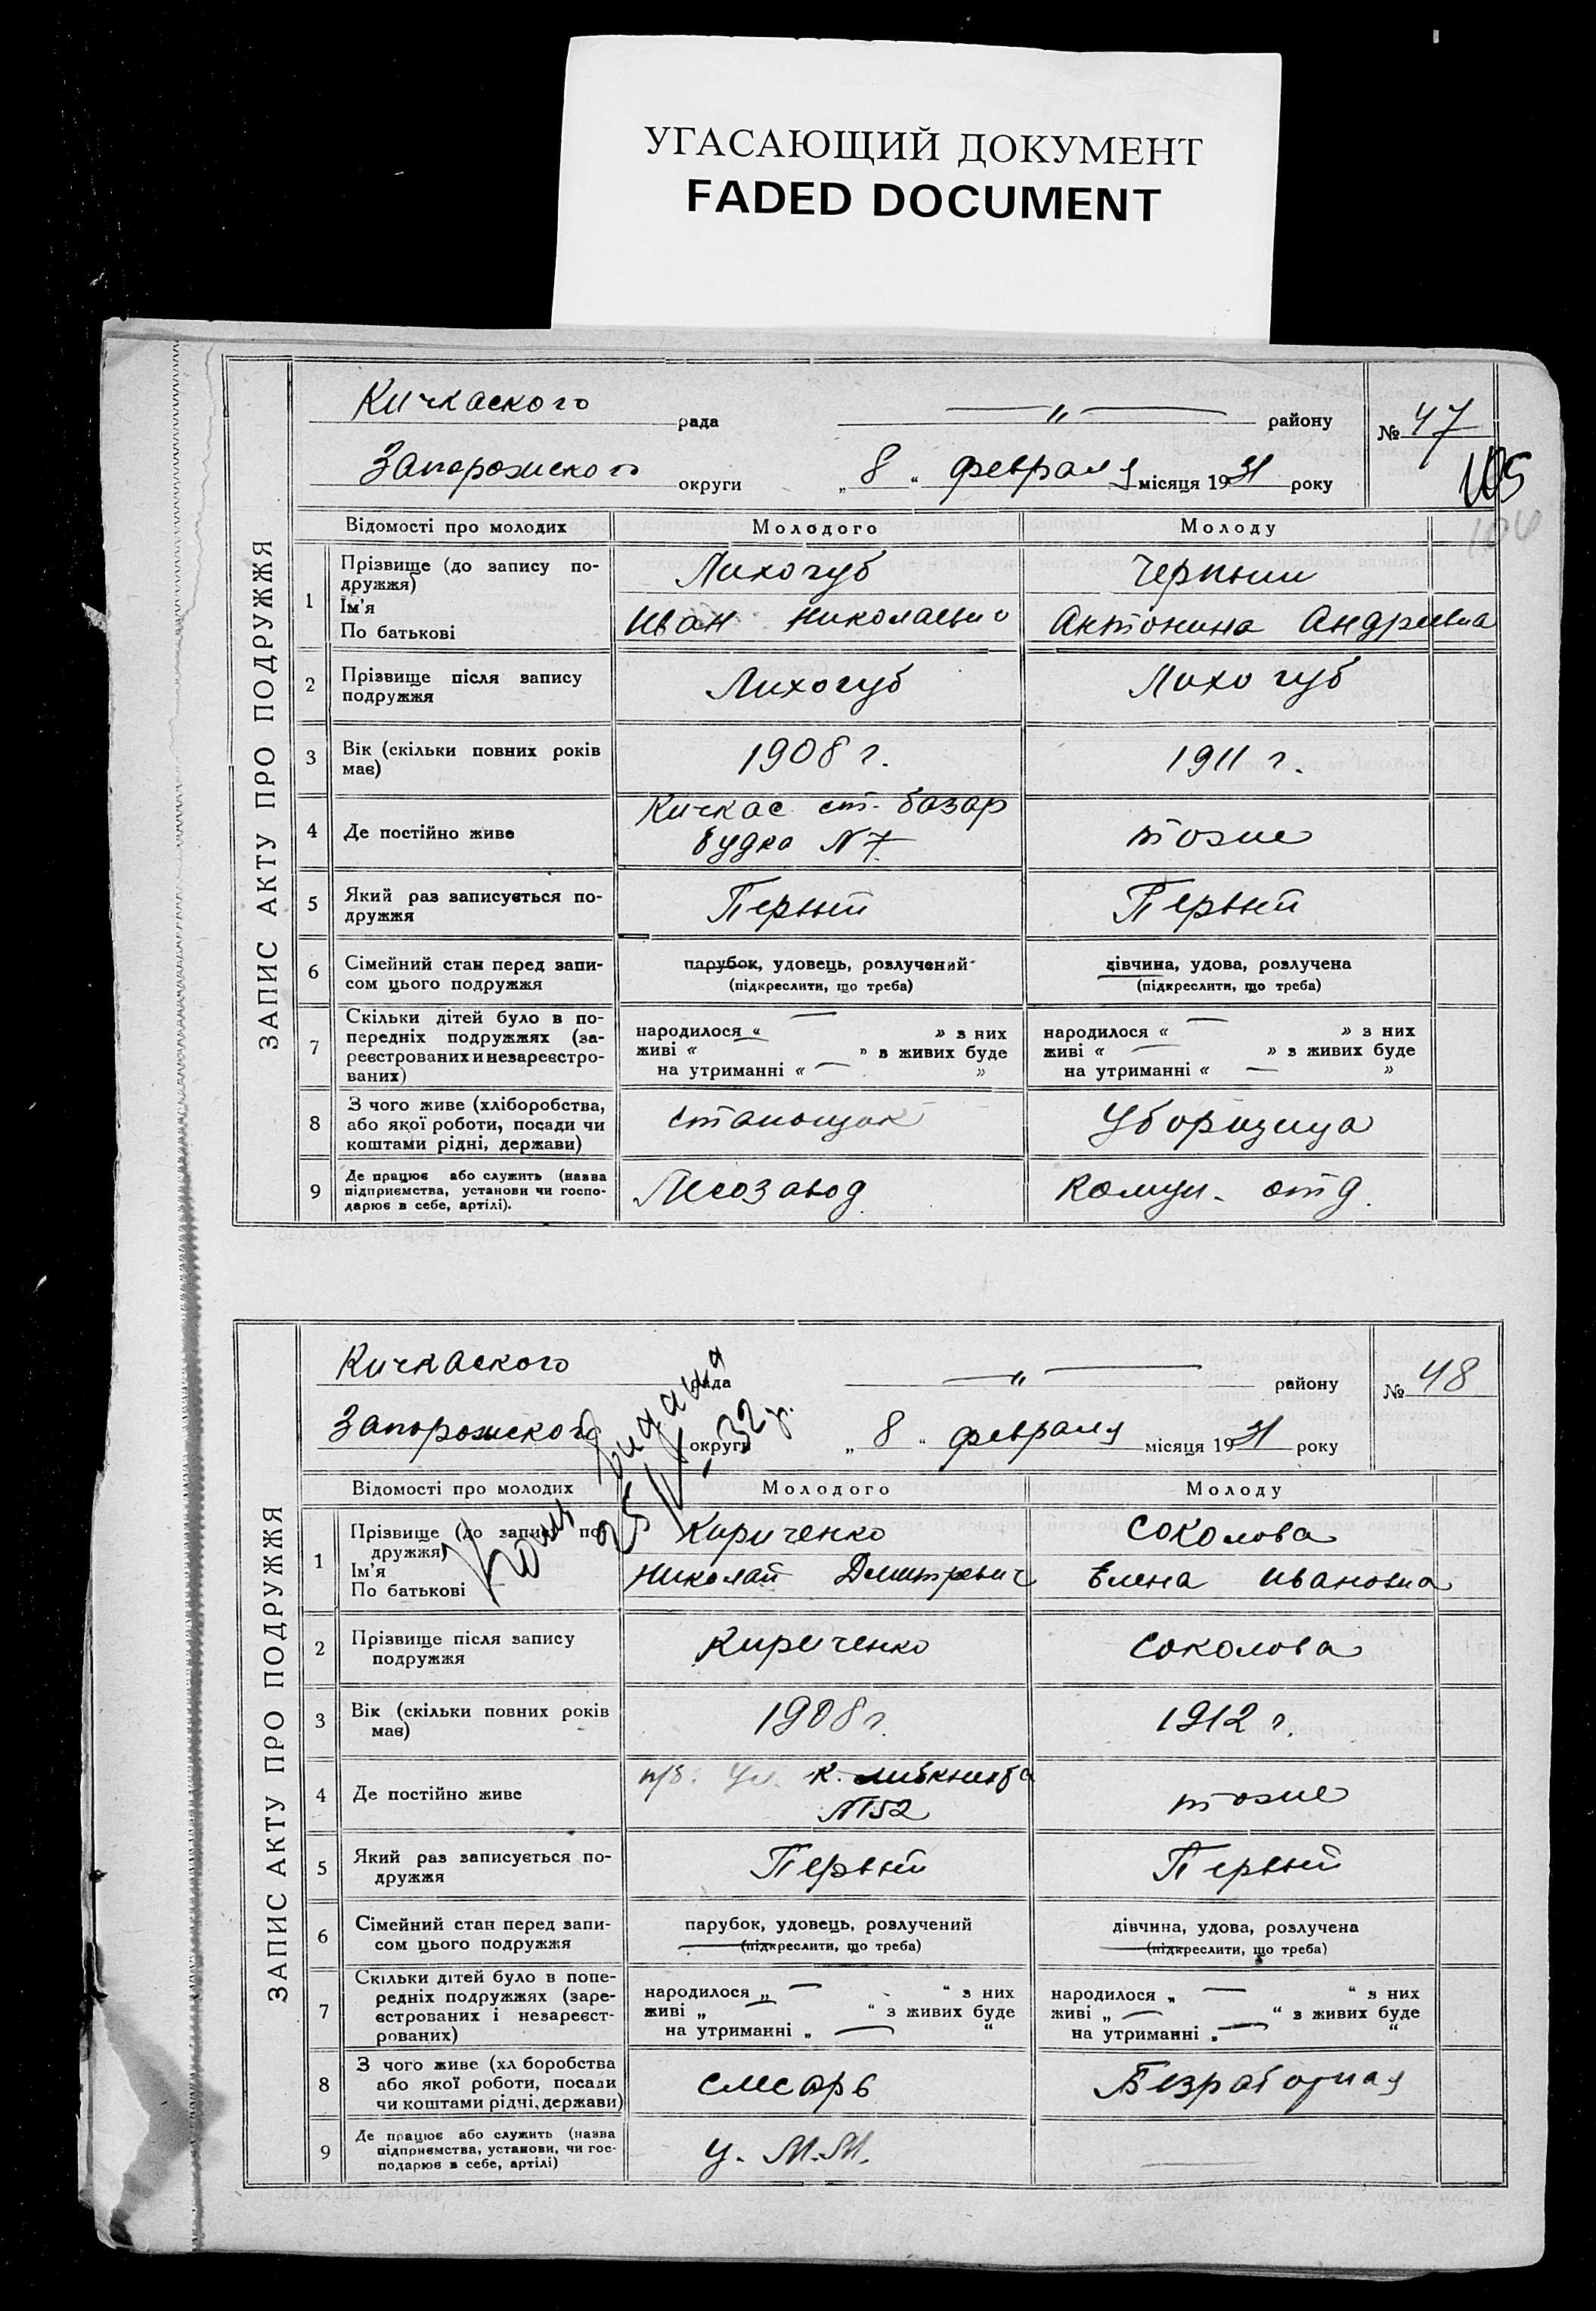 УГАСАЮЩИЙ ДОКУМЕНТ
FADED DOCUMENT
ЗАПИС АКТУ ПРО ПОДРУЖЖЯ
Кичкаского рада —„— району № 47
Запорожского округи „ 8 “ февраля місяця 1931 року
105
104
Відомості про молодих Молодого Молоду
1 Прізвище (до запису по-
дружжя)
Ім'я
По батькові
Лихогуб
Иван Николаевич
Черныш
Антонина Андреевна
2 Прізвище після запису
подружжя
Лихогуб
Лихогуб
3 Вік (скільки повних років
має)
1908 г.
1911 г.
4 Де постійно живе
Кичкас ст. базар
будка N 7
тоже
5 Який раз записується по-
дружжя
Первый
Первый
6 Сімейний стан перед запи-
сом цього подружжя
парубок, удовець, розлучений
(підкреслити, що треба)
дівчина, удова, розлучена
(підкреслити, що треба)
7 Скільки дітей було в по-
передніх подружжях (за-
реєстрованих и незареєстро-
ваних)
народилося « — » з них
живі « » з живих буде
на утриманні « — »
народилося « — » з них
живі « — » з живих буде
на утриманні « — »
8 З чого живе (хліборобства,
або якої роботи, посади чи
коштами рідні, держави)
станощик
Уборщица
9 Де працює або служить (назва
підприємства, установи чи госпо-
дарює в себе, артілі).
Лесозавод
Комун. отд.
ЗАПИС АКТУ ПРО ПОДРУЖЖЯ
Кичкаского рада —„— району № 48
Запорожского округи „ 8 “ февраля місяця 1931 року
видана
25/IV-32 р.
Відомості про молодих Молодого Молоду
1 Прізвище (до запису по
дружжя)
Ім'я
По батькові
Кириченко
Николай Дмитревич
Соколова
Елена Ивановна
2 Прізвище після запису
подружжя
Кириченко
Соколова
3 Вік (скільки повних років
має)
1908 г.
1912 г.
4 Де постійно живе
ул. К. Либкнехта
N 152
тоже
5 Який раз записується по-
дружжя
Первый
Первый
6 Сімейний стан перед запи-
сом цього подружжя
парубок, удовець, розлучений
(підкреслити, що треба)
дівчина, удова, розлучена
(підкреслити, що треба)
7 Скільки дітей було в попе-
редніх подружжях (заре-
єстрованих і незареєст-
рованих)
народилося „ — “ з них
живі „ — “ з живих буде
на утриманні „ — “
народилося „ — “ з них
живі „ — “ з живих буде
на утриманні „ — “
8 З чого живе (хл боробства
або якої роботи, посади
чи коштами рідні, держави)
слесарь
Безработная
9 Де працює або служить (назва
підприємства, установи, чи гос-
подарює в себе, артілі)
У. М.М.
—